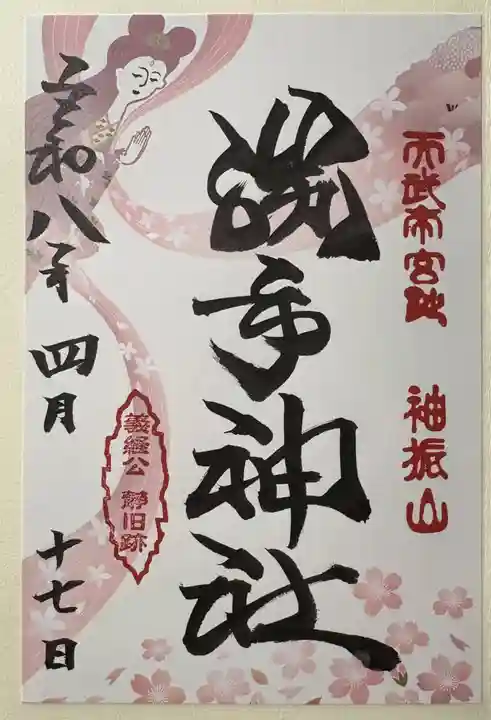 天武帝宮地 袖振山
勝手神社
義経公 静旧跡
令和八年 四月 十七日